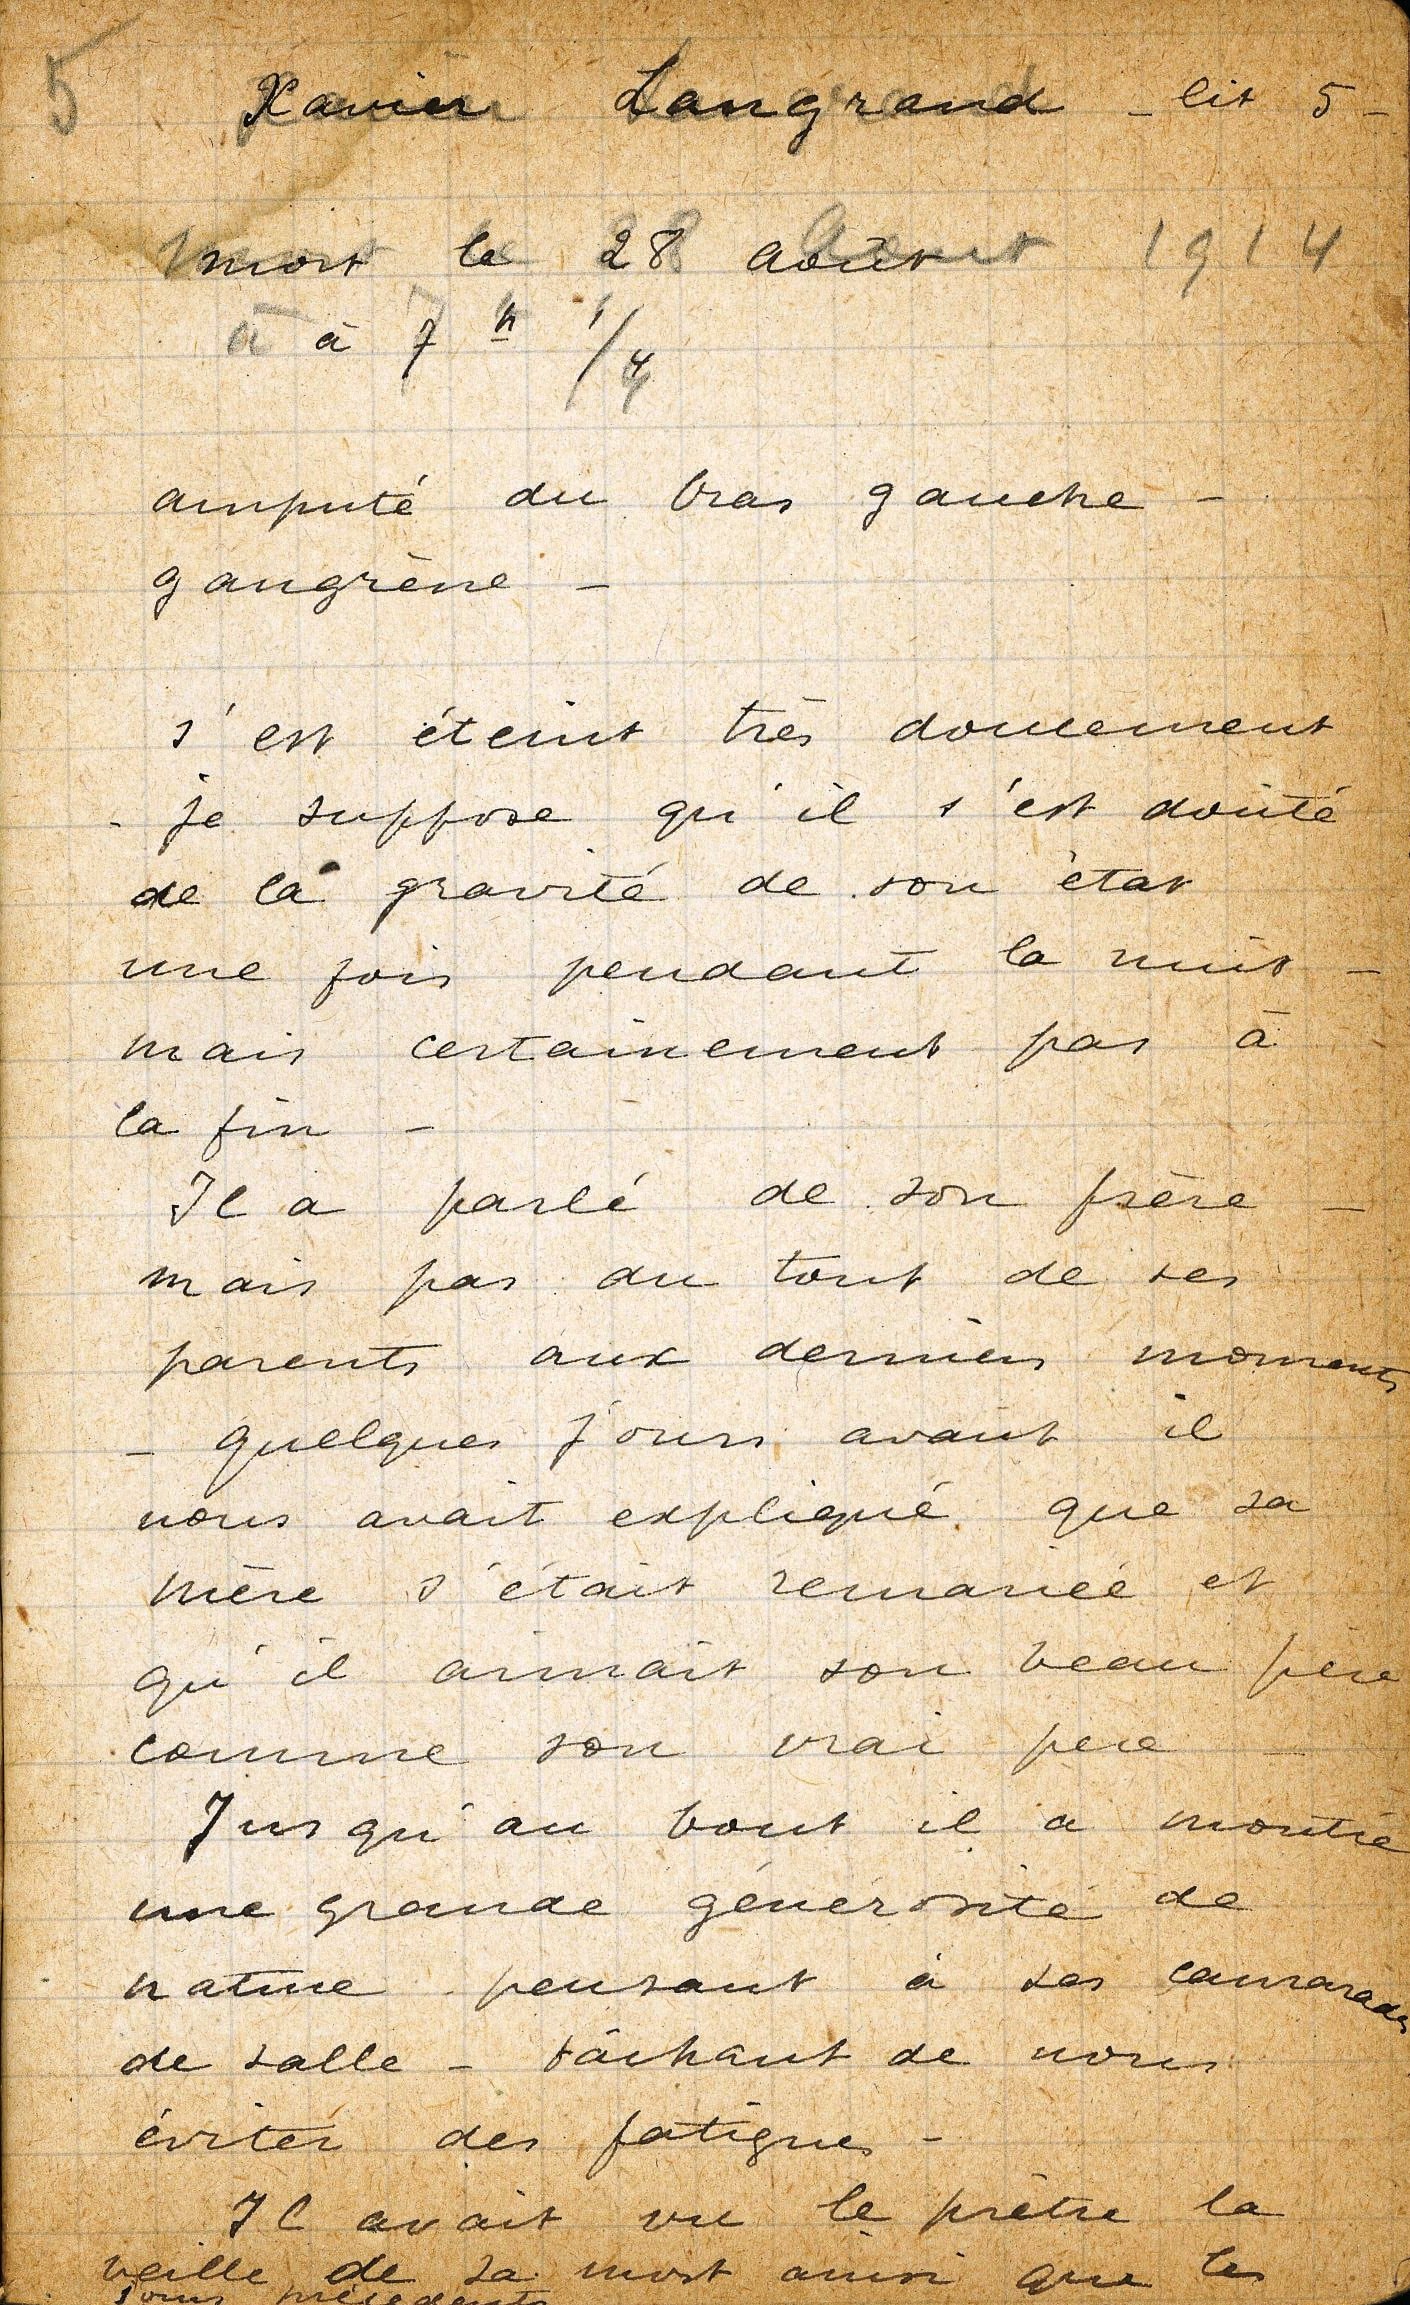 5 Xavier Langrand - lit 5 -
mort le 28 Août 1914
à à 7 h 1/4
amputé du bras gauche -
gangrène -
s'est éteint très doucement
- je suppose qu'il s'est douté
de la gravité de son état
une fois pendant la nuit -
mais certainement pas à
la fin -
Il a parlé de son frère -
mais pas du tout de ses
parents aux derniers moments
- quelques jours avant il
nous avait expliqué que sa
mère s'était remariée et
qu'il aimait son beau père
comme son vrai père -
Jusqu'au bout il a montré
une grande générosité de
nature pensant à ses camarades
de salle - tâchant de nous
éviter des fatigues -
Il avait vu le prêtre la
veille de sa mort ainsi que les
jours précédents